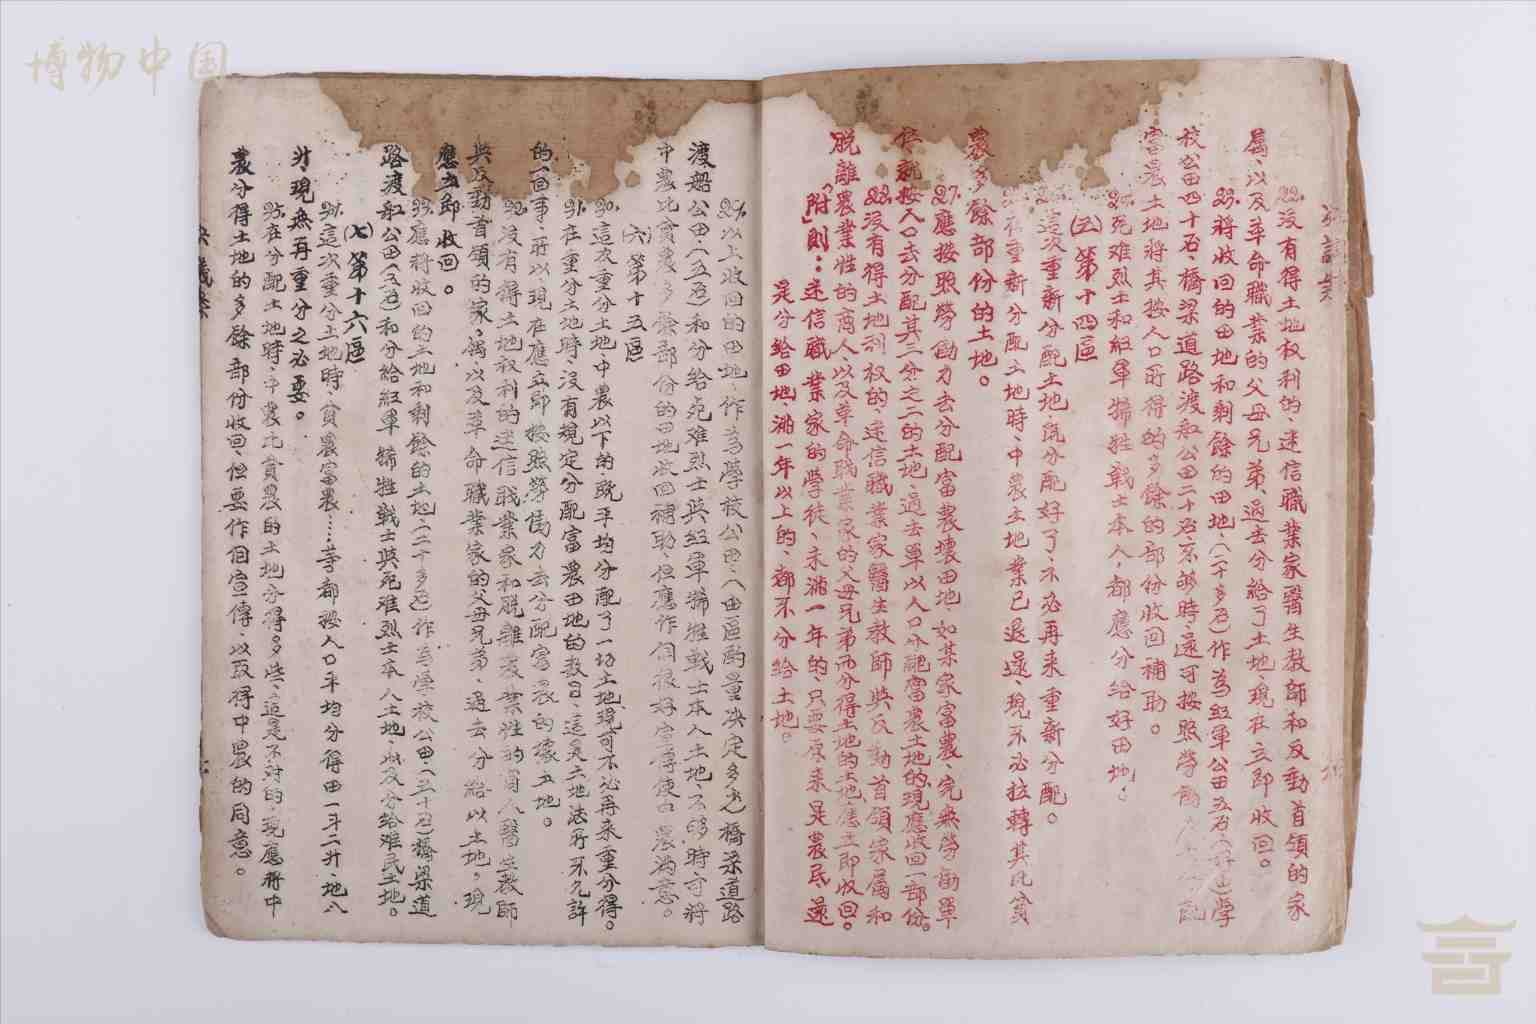 博物中国
22.沒有得土地权利的、迷信職業家醫生教師和反動首領的家
屬、以及革命職業的父母兄弟、過去分給了土地、現在立即收回。
23.將收回的田地和剩餘的田地、(一千多石)作為紅軍公田五石、(好田)學
校公田四十石、橋梁道路渡船公田二十石、不够時還可按照勞働
富農土地將其按人口所得的多餘的部份收回補助。
死难烈士和紅軍犧牲戰士本人、都應分給好田地。
(五)第十四區
這次重新分配土地既分配好了、不必再來重新分配。
在重新分配土地時、中農土地業已退還、現不必拉轉其比貧
農多餘部份的土地。
27.應按照勞働力去分配富農壞田地如某家富農、完無勞働單
位就按人口去分配其二分之二的土地、過去單以人口分配富農土地的現應收回一部份。
28.沒有得土地利权的、迷信職業家醫生教師與反動首領家屬和
脫離農業性的商人、以及革命職業家的父母兄弟而分得土地的土地、應立即收回。
「附」則：迷信職業家的學徒、未滿一年的、只要原來是農民、還
是分給田地、滿一年以上的、都不分給土地。
29.以上收回的田地、作為學校公田、(由區酌量决定多少)橋梁道路
渡船公田、(五石)和分給死难烈士與紅軍犧牲戰士本人土地、不够時可將
中農比貧農多餘部份的田地收回補助、但應作個很好宣傳使中農滿意。
(六)第十五區
30.這次重分土地、中農以下的既平均分配了一切土地現可不必再來重分得。
31.在重分土地時、沒有規定分配富農田地的数目、這是土地法所不允許
的一回事、所以現在應立即按照勞働力去分配富農的壞土地。
32.沒有得土地权利的迷信職業家和脫離農業性的商人醫生教師
與反動首領的家屬以及革命職業家的父母兄弟、過去分給以土地。現
應立即收回。
33.應將收回的土地和剩餘的土地(二十多石)作為學校公田(三十石)橋梁道
路渡船公田(五石)和分給紅軍犧牲戰士與死难烈士本人土地、以及分給难民土地。
(七)第十六區
34.這次重分土地時、貧農富農……等都按人口平均分得田一斗二升、地八
升現無再重分之必要。
35.在分配土地時、中農比貧農的土地分得多些、這是不对的、現應將中
農分得土地的多餘部份收回、但要作個宣傳、以取得中農的同意。